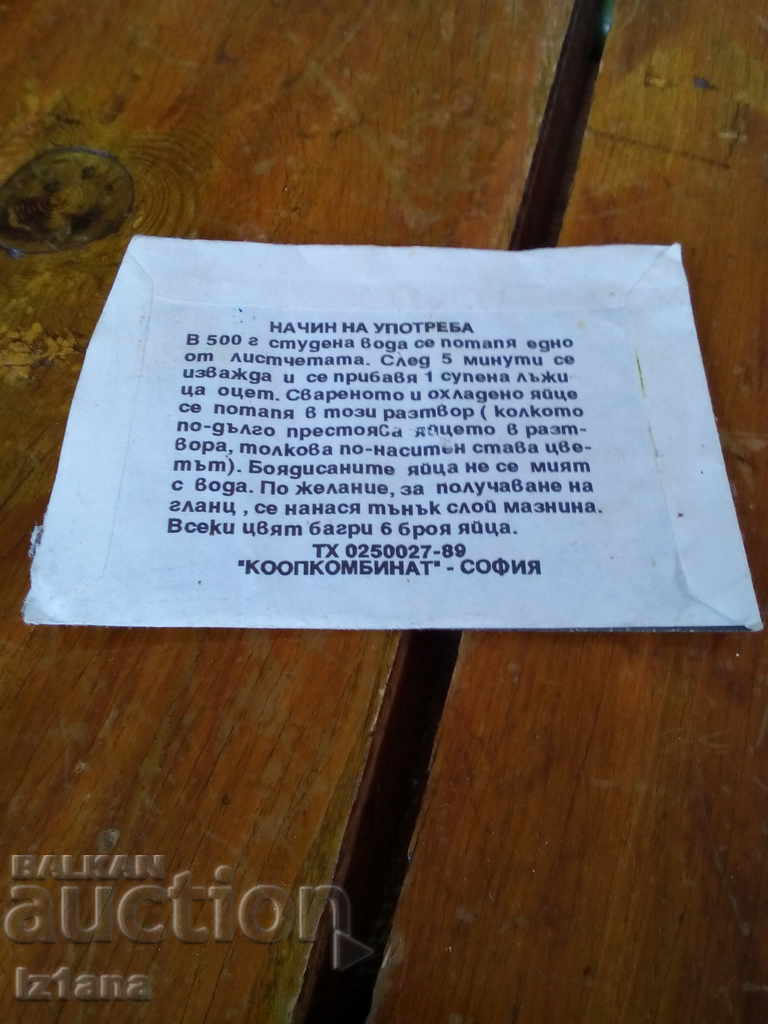 НАЧИН НА УПОТРЕБА
В 500 г студена вода се потапя едно
от листчетата. След 5 минути се
изважда и се прибавя 1 супена лъжи
ца оцет. Свареното и охладено яйце
се потапя в този разтвор ( колкото
по-дълго престоява яйцето в разт-
вора, толкова по-наситен става цве-
тът). Боядисаните яйца не се мият
с вода. По желание, за получаване на
гланц , се нанася тънък слой мазнина.
Всеки цвят багри 6 броя яйца.
ТХ 0250027-89
"КООПКОМБИНАТ" - СОФИЯ
BALKAN
auction
Iz1ana